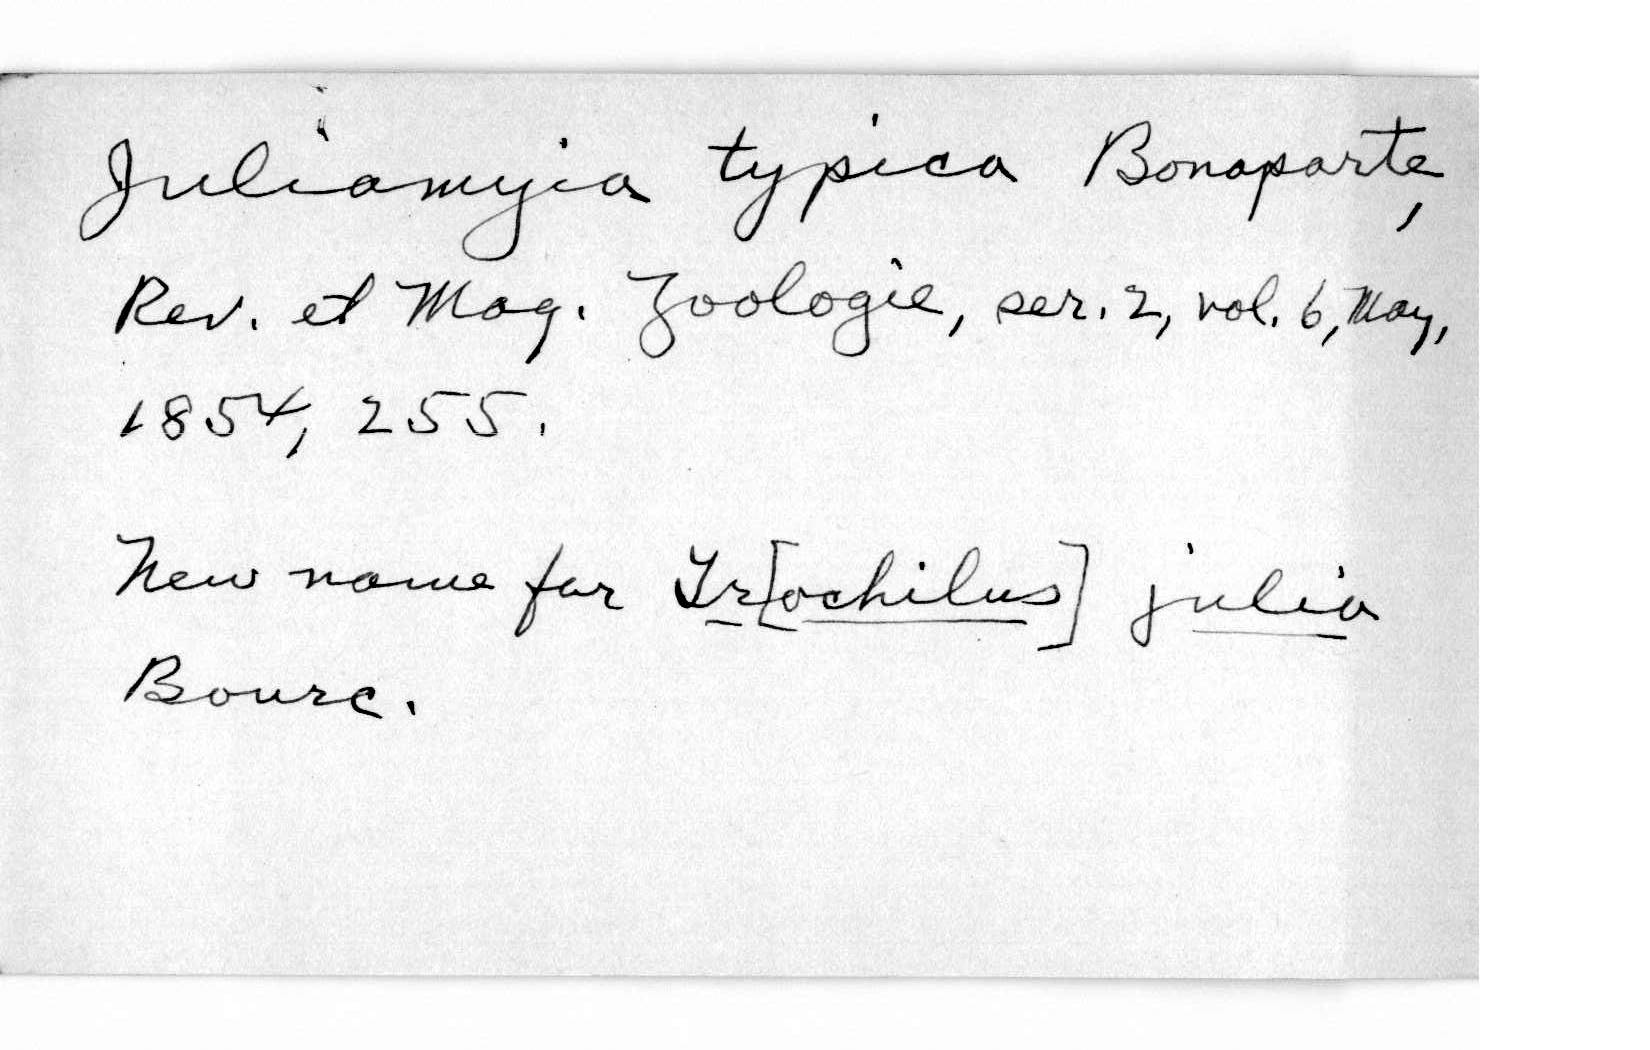 Juliamyia typica Bonaparte,
Rev. et Mag. Zoologie, ser. 2, vol. 6, May,
1854, 255.
New name for Tr[ochilus] julia
Bourc.